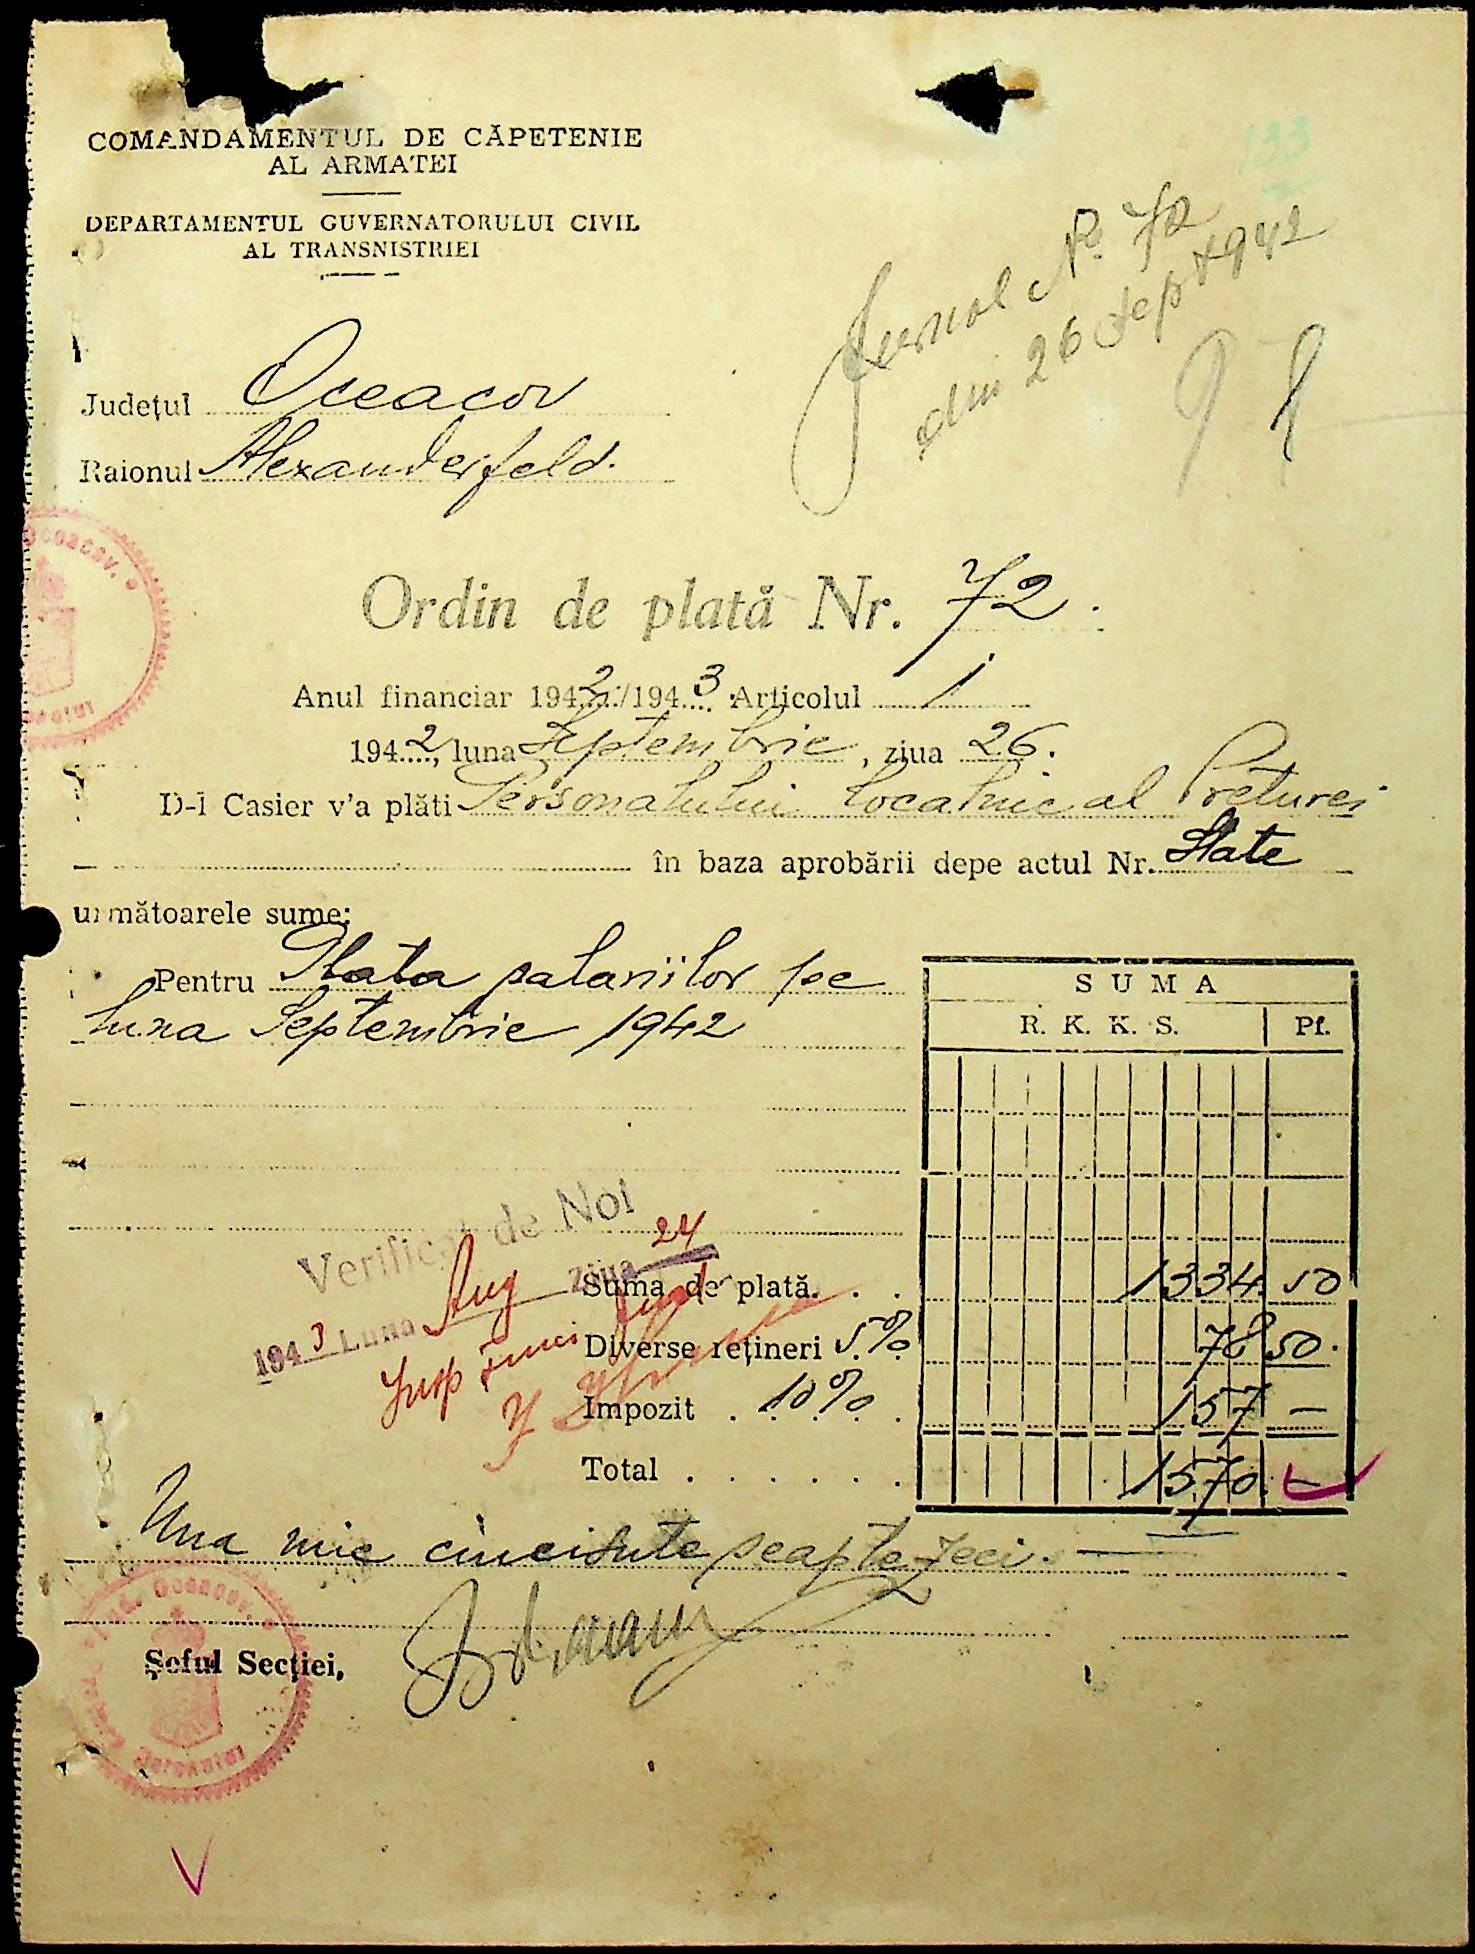 COMANDAMENTUL DE CĂPETENIE
AL ARMATEI
DEPARTAMENTUL GUVERNATORULUI CIVIL
AL TRANSNISTRIEI
133
Jurnal No. 72
din 26 Sept 1942
Județul Oceacov
Raionul Alexanderfeld.
Oceacov.
Ordin de plată Nr. 72.
Anul financiar 1942/1943 Articolul 1
1942, luna Septembrie, ziua 26.
D-l Casier v'a plăti Personalului localnic al Preturei
în baza aprobării depe actul Nr. State
următoarele sume:
Pentru Plata salariilor pe
luna Septembrie 1942
SUMA
R. K. K. S. Pf.
Verificat de Noi
1943 Luna Aug ziua 24
Insp
Suma de plată. . . 1334. 50
Diverse rețineri 5% 78 50.
Impozit . 10% . 157 —
Total . . . . . . 1570. —
Una mie cincisute șeaptezeci. —
Șeful Secției,
Jud. Oceacov.